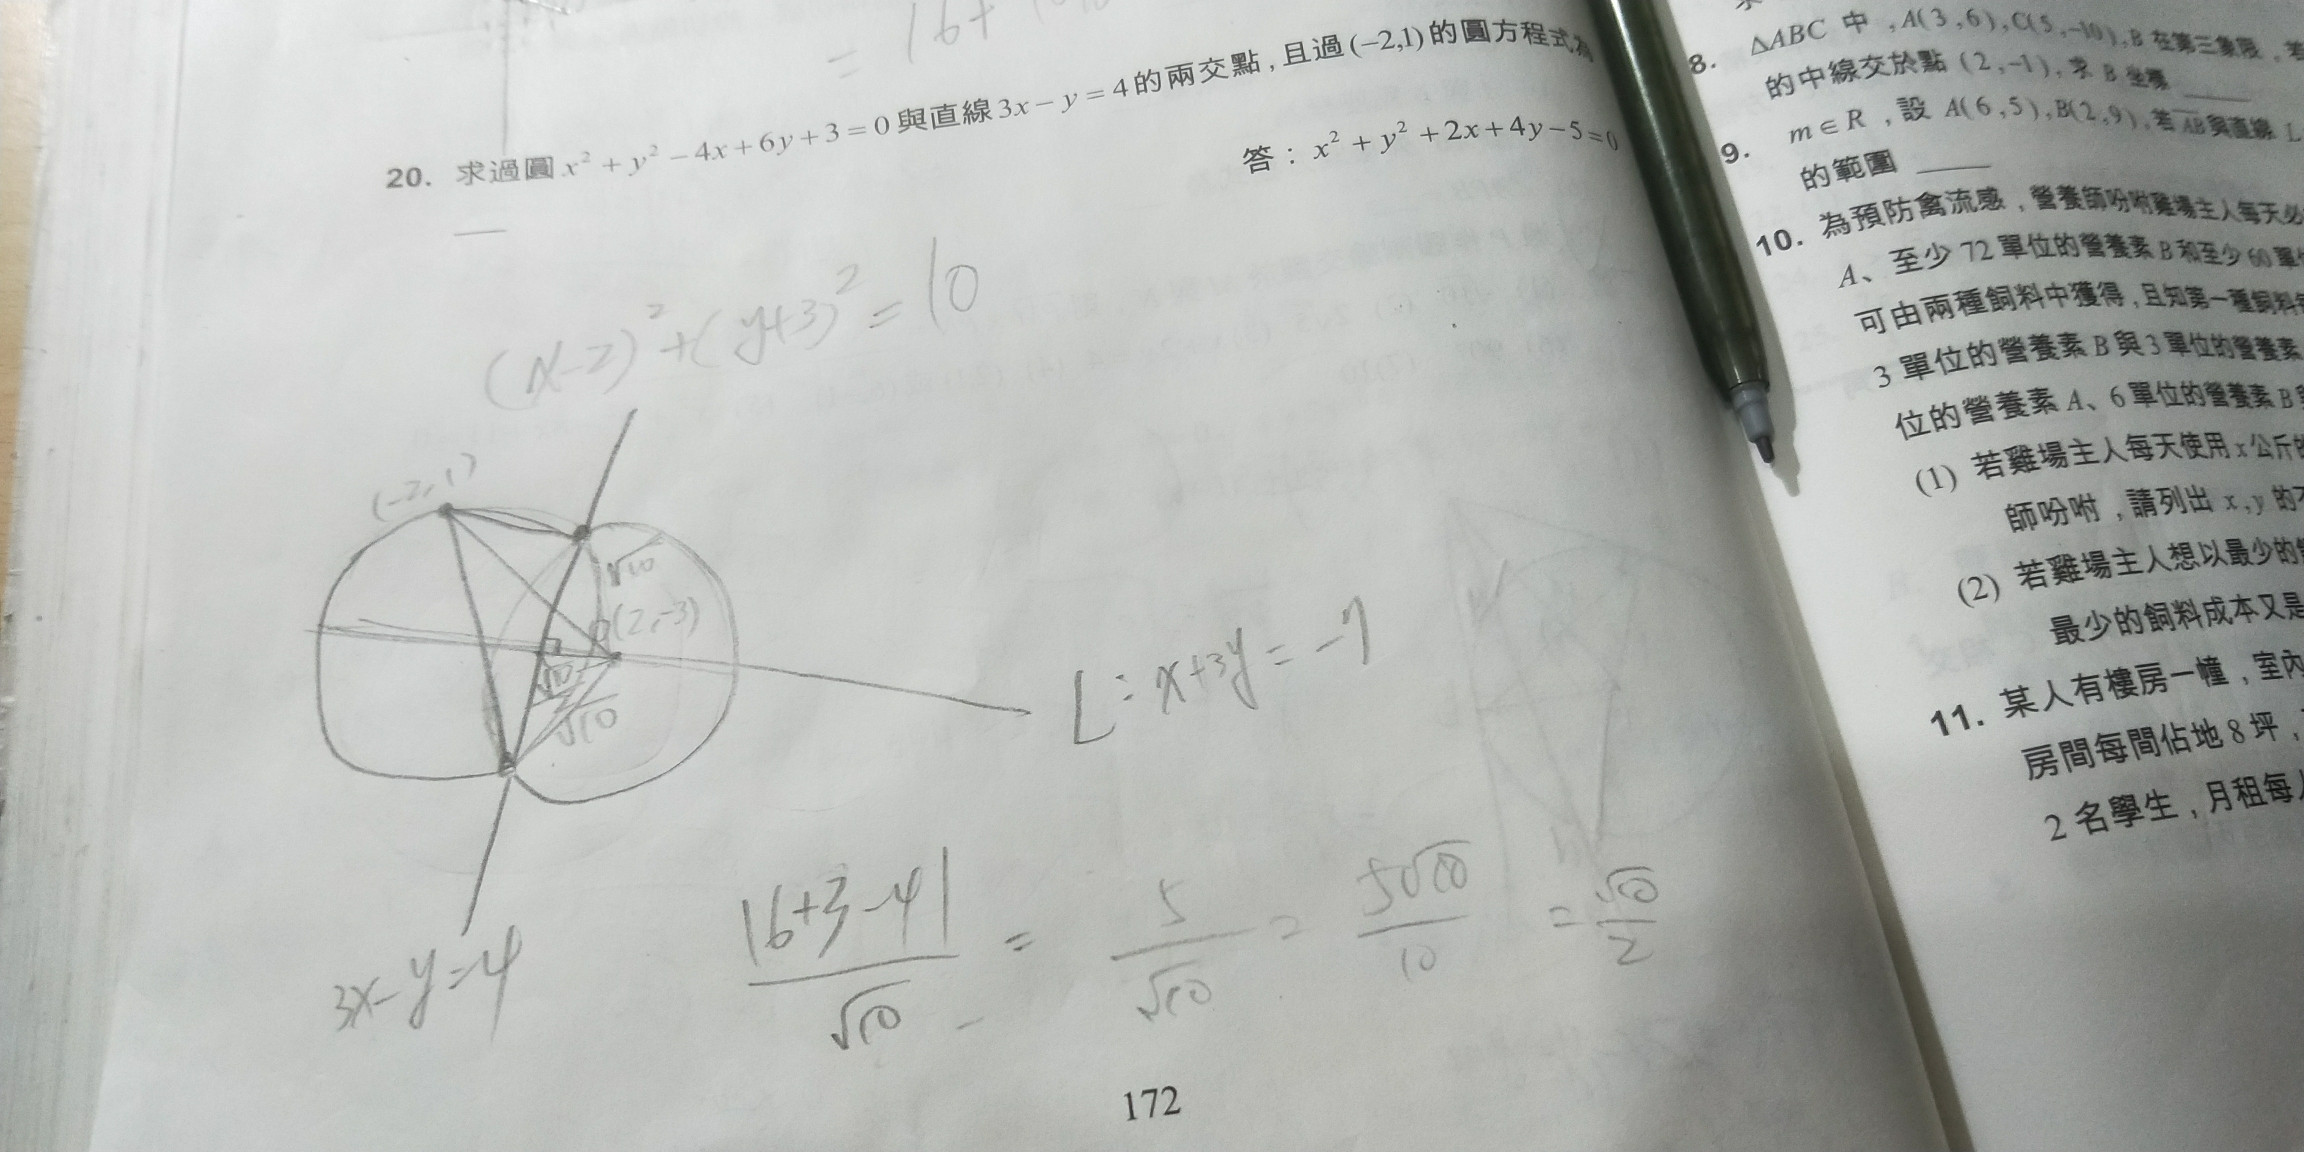 = 16+
20. 求過圓 x² + y² − 4x + 6y + 3 = 0 與直線 3x − y = 4 的兩交點，且過 (−2,1) 的圓方程式為
答：x² + y² + 2x + 4y − 5 = 0
(x-2)² + (y+3)² = 10
(-2,1)
√10
(2,-3)
√10
L: x+3y = -7
3x-y=4
|6+3-4| / √10 = 5/√10 = 5√10/10 = √10/2
172
8. △ABC 中，A(3,6), C(5,−10), B 在第三象限，若
的中線交於點 (2,−1)，求 B 坐標
9. m∈R，設 A(6,5), B(2,9)，若 AB 與直線 L
的範圍
10. 為預防禽流感，營養師吩咐雞場主人每天必
A、至少 72 單位的營養素 B 和至少 60 單位
可由兩種飼料中獲得，且知第一種飼料每
3 單位的營養素 B 與 3 單位的營養素
位的營養素 A、6 單位的營養素 B
(1) 若雞場主人每天使用 x 公斤的
師吩咐，請列出 x,y 的不
(2) 若雞場主人想以最少的
最少的飼料成本又是
11. 某人有樓房一幢，室內
房間每間佔地 8 坪，
2 名學生，月租每人